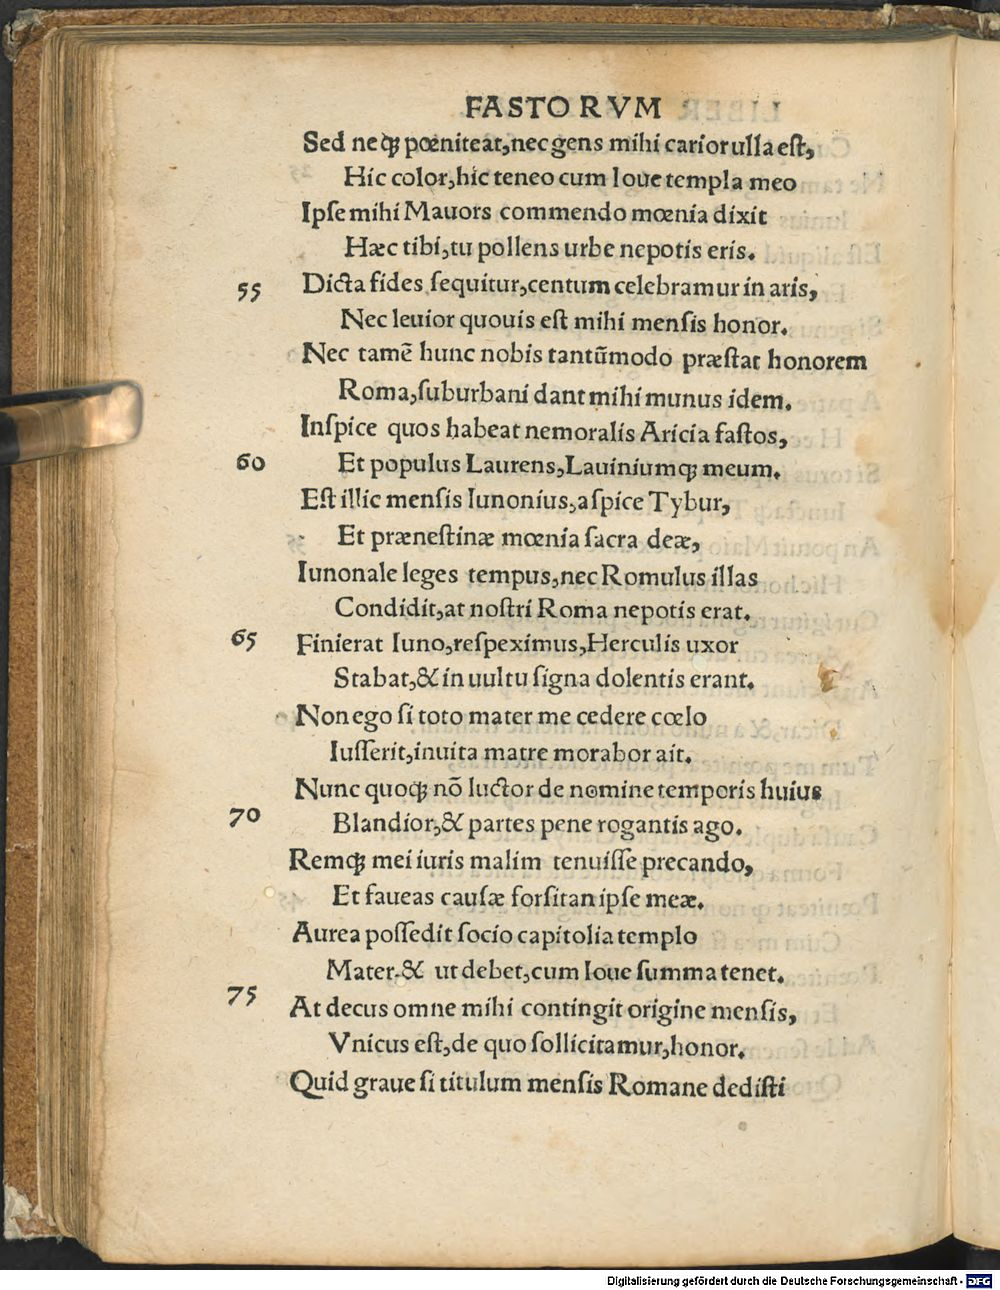 FASTORVM
Sed neqꝫ pœniteat,nec gens mihi carior ulla eſt,
Hic color,hic teneo cum Ioue templa meo
Ipſe mihi Mauors commendo mœnia dixit
Hæc tibi,tu pollens urbe nepotis eris.
55 Dicta fides ſequitur,centum celebramur in aris,
Nec leuior quouis eſt mihi menſis honor.
Nec tamē hunc nobis tantūmodo præſtat honorem
Roma,ſuburbani dant mihi munus idem.
Inſpice quos habeat nemoralis Aricia faſtos,
60 Et populus Laurens,Lauiniumqꝫ meum.
Eſt illic menſis Iunonius,aſpice Tybur,
Et præneſtinæ mœnia ſacra deæ,
Iunonale leges tempus,nec Romulus illas
Condidit,at noſtri Roma nepotis erat.
65 Finierat Iuno,reſpeximus,Herculis uxor
Stabat,& in uultu ſigna dolentis erant.
Non ego ſi toto mater me cedere cœlo
Iuſſerit,inuita matre morabor ait.
Nunc quoqꝫ nō luctor de nomine temporis huius
70 Blandior,& partes pene rogantis ago.
Remqꝫ mei iuris malim tenuiſſe precando,
Et faueas cauſæ forſitan ipſe meæ.
Aurea poſſedit ſocio capitolia templo
Mater.& ut debet,cum Ioue ſumma tenet.
75 At decus omne mihi contingit origine menſis,
Vnicus eſt,de quo ſollicitamur,honor.
Quid graue ſi titulum menſis Romane dediſti
Digitalisierung gefördert durch die Deutsche Forschungsgemeinschaft - DFG